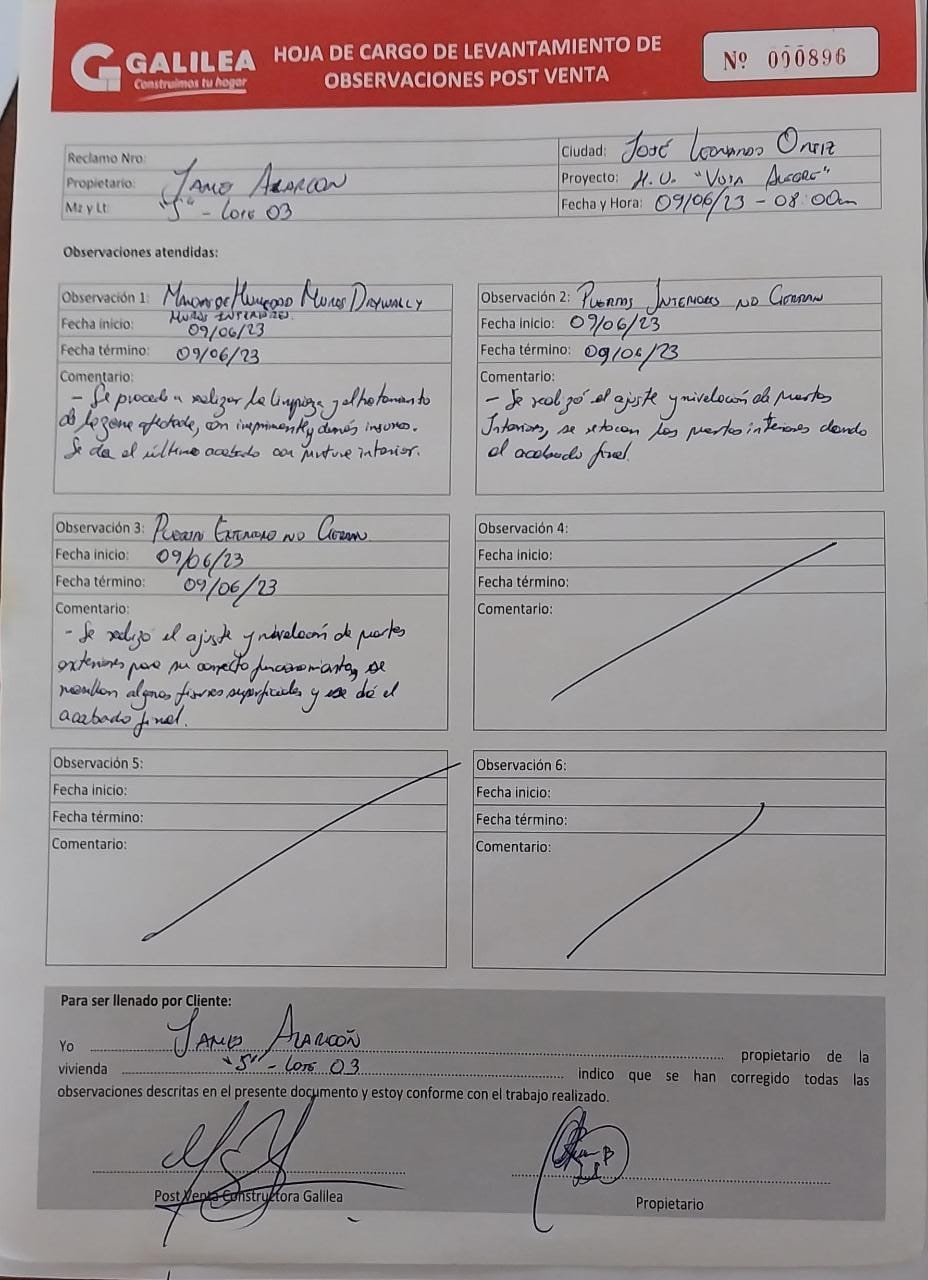 GALILEA
Construimos tu hogar
HOJA DE CARGO DE LEVANTAMIENTO DE
OBSERVACIONES POST VENTA
Nº 000896
Reclamo Nro:
Propietario: James Alarcon
Mz y Lt: "S" - Lote 03
Ciudad: José Leonardo Ortiz
Proyecto: H.U. "Vista Alegre"
Fecha y Hora: 09/06/23 - 08:00am
Observaciones atendidas:
Observación 1: Manchas de Humedad Muros Drywall y
Muros Interiores.
Fecha inicio: 09/06/23
Fecha término: 09/06/23
Comentario:
- Se procede a realizar la limpieza y el tratamiento
de la zona afectada, con imprimante y demás insumos.
Se da el último acabado con pintura interior.
Observación 2: Puertas Interiores no Cierran
Fecha inicio: 09/06/23
Fecha término: 09/06/23
Comentario:
- Se realizó el ajuste y nivelación de puertas
Interiores, se retocan las puertas interiores dando
el acabado final.
Observación 3: Puerta Exterior no Cierran
Fecha inicio: 09/06/23
Fecha término: 09/06/23
Comentario:
- Se realizo el ajuste y nivelación de puertas
exteriores para su correcto funcionamiento, se
resanan algunas fisuras superficiales y se dá el
acabado final.
Observación 4:
Fecha inicio:
Fecha término:
Comentario:
Observación 5:
Fecha inicio:
Fecha término:
Comentario:
Observación 6:
Fecha inicio:
Fecha término:
Comentario:
Para ser llenado por Cliente:
Yo James Alarcón propietario de la
vivienda "S" - Lote 03 indico que se han corregido todas las
observaciones descritas en el presente documento y estoy conforme con el trabajo realizado.
Post Venta Constructora Galilea
Propietario